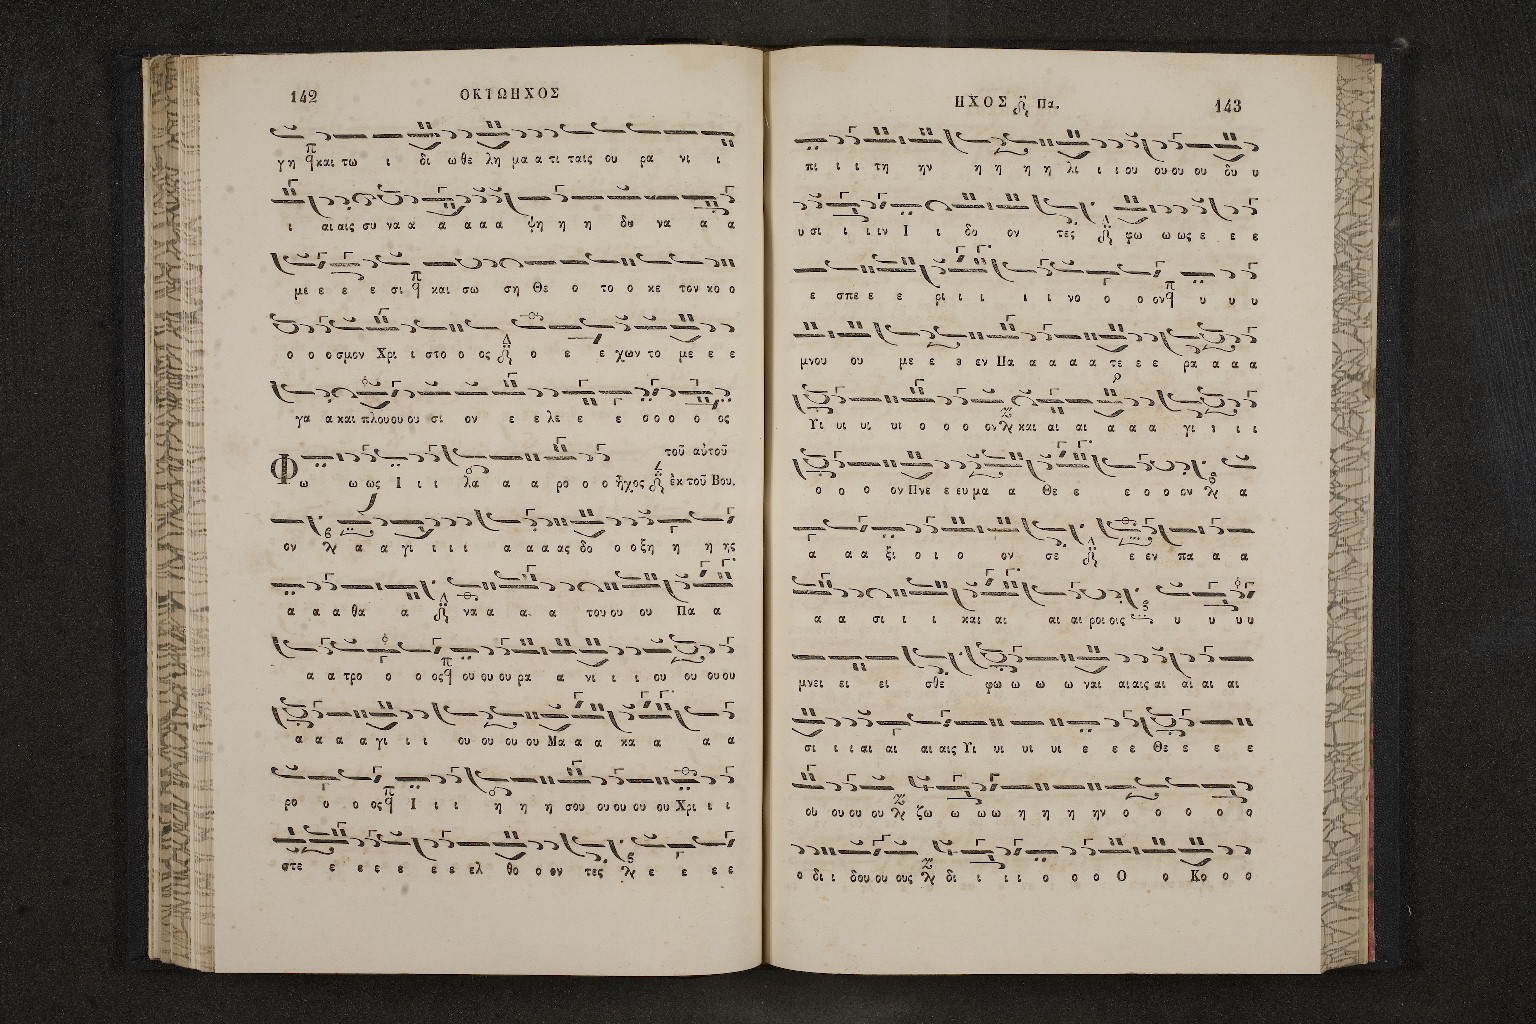 142
ΟΚΤΩΗΧΟΣ
γη και τω ι δι ω θε λη μα α τι ταις ου ρα νι ι
ι αι αις συ να α α α α α ψη η η δυ να α α
με ε ε ε σι και σω ση Θε ο το ο κε τον κο ο
ο ο ο σμον Χρι ι στο ο ος ο ε ε χων το με ε ε
γα α και πλου ου ου σι ον ε ε λε ε ε ο ο ο ο ος
τοῦ αὐτοῦ
Φω ω ως Ι ι ι λα α α ρο ο ο ἦχος ἐκ τοῦ Βου.
ον α α γι ι ι ι α α α ας δο ο ο ξη η η ης
α α α θα α να α α α του ου ου Πα α
α α τρο ο ο ος ου ου ου ρα α νι ι ι ου ου ου ου
α α α α γι ι ι ου ου ου ου Μα α α κα α α α
ρο ο ο ος Ι ι ι η η η σου ου ου ου ου Χρι ι ι
στε ε ε ε ε ε ε ελ θο ο ον τες ε ε ε ε
ΗΧΟΣ Πα.
143
πι ι ι τη ην η η η η λι ι ι ου ου ου ου δυ υ
υ σι ι ι ιν Ι ι δο ον τες φω ω ως ε ε ε
ε σπε ε ε ρι ι ι ι ι νο ο ο ον υ υ υ
μνου ου με ε ε εν Πα α α α α τε ε ε ρα α α α
Υι υι υι υι ο ο ο ον και αι αι α α α γι ι ι ι
ο ο ο ον Πνε ε ευ μα α Θε ε ε ο ο ον α
α α α ξι ο ι ο ον σε ε εν πα α α
α α σι ι ι και αι αι αι ροι οις υ υ υ υ
μνει ει ει σθε φω ω ω ω ναι αι αις αι αι αι αι
σι ι ι αι αι αι αις Υι υι υι υι ε ε ε Θε ε ε ε
ου ου ου ου ζω ω ω ω η η η ην ο ο ο ο ο
ο δι ι δου ου ους δι ι ι ι ο ο ο Ο ο Κο ο ο